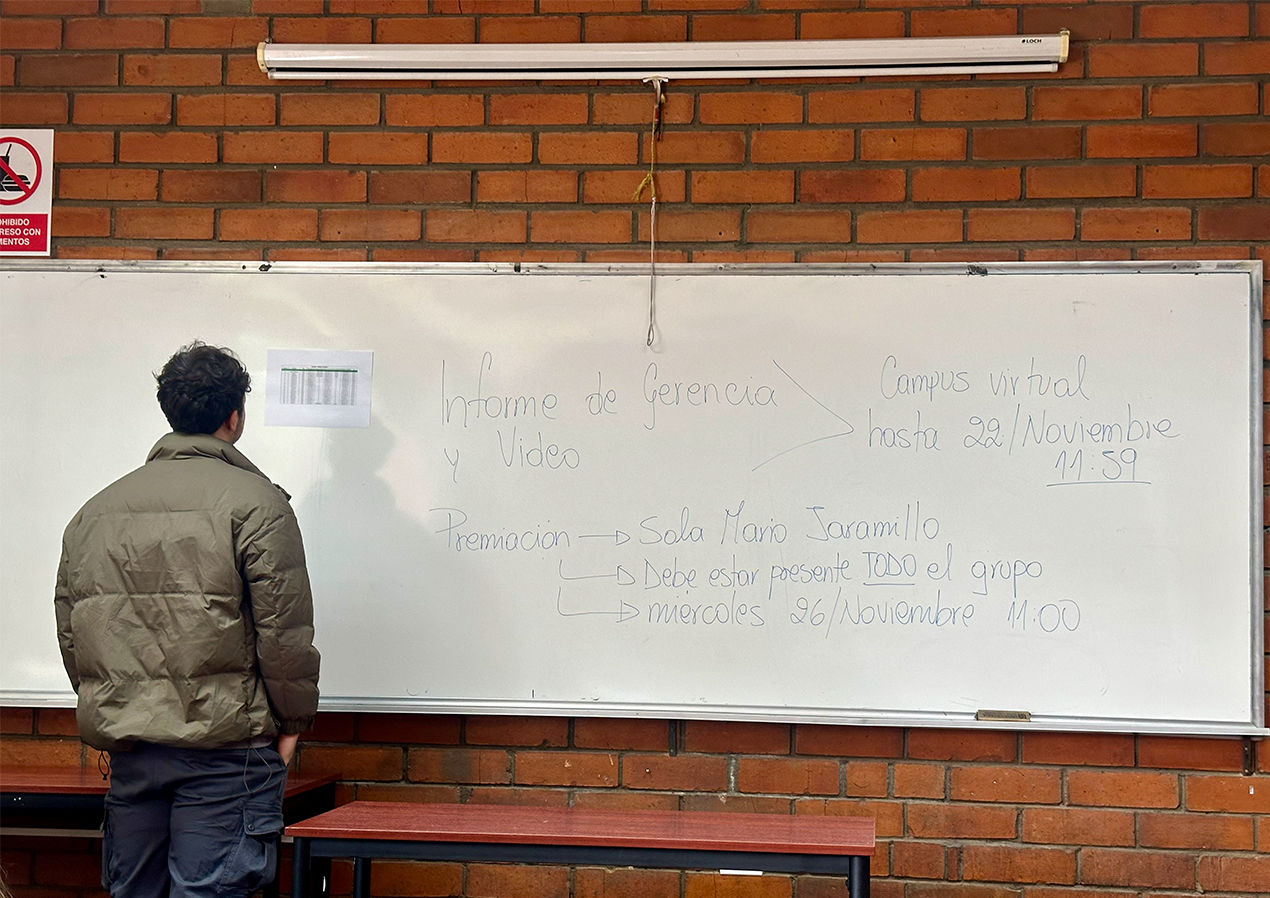 LOCH
OHIBIDO
RESO CON
MENTOS
Informe de Gerencia
y Video
Campus virtual
hasta 22/Noviembre
11:59
Premiación → Sala Mario Jaramillo
→ Debe estar presente TODO el grupo
→ miércoles 26/Noviembre 11:00